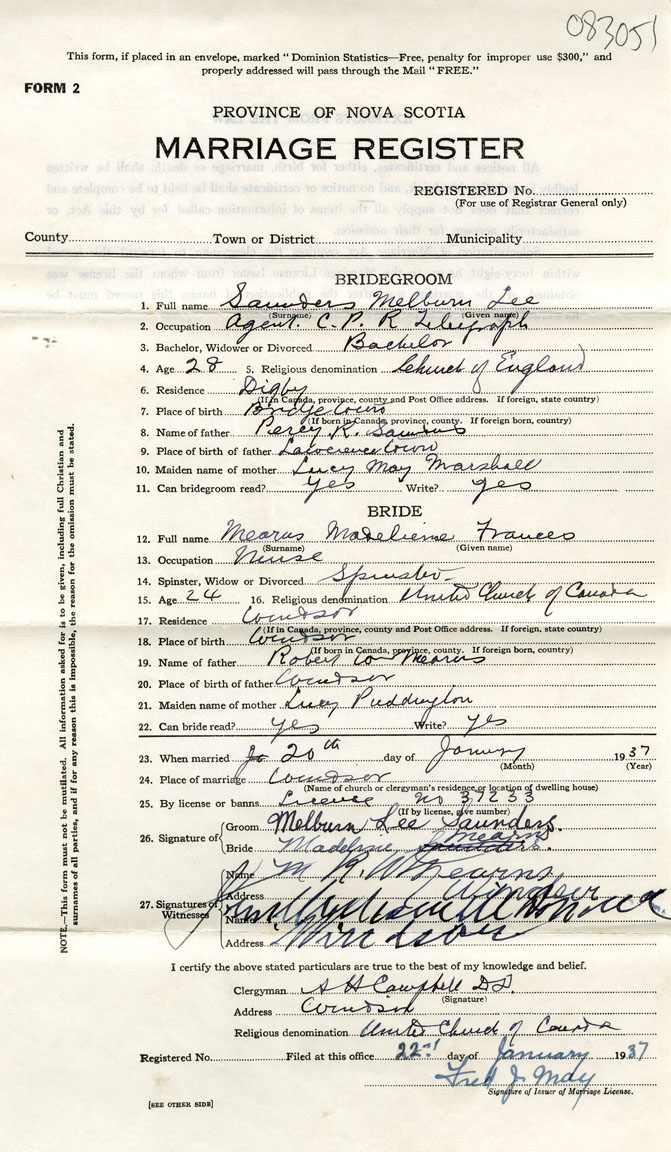 083051
This form, if placed in an envelope, marked "Dominion Statistics—Free, penalty for improper use $300," and
properly addressed will pass through the Mail "FREE."
FORM 2
PROVINCE OF NOVA SCOTIA
MARRIAGE REGISTER
REGISTERED No.
(For use of Registrar General only)
County Town or District Municipality
BRIDEGROOM
1. Full name Saunders Melburn Lee
(Surname) (Given name)
2. Occupation Agent. C. P. R Telegraph
3. Bachelor, Widower or Divorced Bachelor
4. Age 28 5. Religious denomination Church of England
6. Residence Digby
(If in Canada, province, county and Post Office address. If foreign, state country)
7. Place of birth Bridgetown
(If born in Canada, province, county. If foreign born, country)
8. Name of father Percy R. Saunders
9. Place of birth of father Lawrencetown
10. Maiden name of mother Lucy May Marshall
11. Can bridegroom read? Yes Write? yes
BRIDE
12. Full name Mearns Madeleine Frances
(Surname) (Given name)
13. Occupation Nurse
14. Spinster, Widow or Divorced Spinster
15. Age 24 16. Religious denomination United Church of Canada
17. Residence Windsor
(If in Canada, province, county and Post Office address. If foreign, state country)
18. Place of birth Windsor
(If born in Canada, province, county. If foreign born, country)
19. Name of father Robert Mearns
20. Place of birth of father Windsor
21. Maiden name of mother Lucy Puddington
22. Can bride read? yes Write? yes
23. When married 20th day of January 1937
(Month) (Year)
24. Place of marriage Windsor
(Name of church or clergyman's residence or location of dwelling house)
25. By license or banns License no 37233
(If by license, give number)
26. Signature of Groom Melburn Lee Saunders.
Bride Madeleine Mearns.
27. Signatures of Witnesses
Name Mearns
Address Windsor
Name
Address Windsor
I certify the above stated particulars are true to the best of my knowledge and belief.
Clergyman A H Campbell D.D.
(Signature)
Address Windsor
Religious denomination United Church of Canada
Registered No. Filed at this office 22nd day of January 1937
Fred J. May
Signature of Issuer of Marriage License.
[SEE OTHER SIDE]
NOTE.—This form must not be mutilated. All information asked for is to be given, including full Christian and
surnames of all parties, and if for any reason this is impossible, the reason for the omission must be stated.